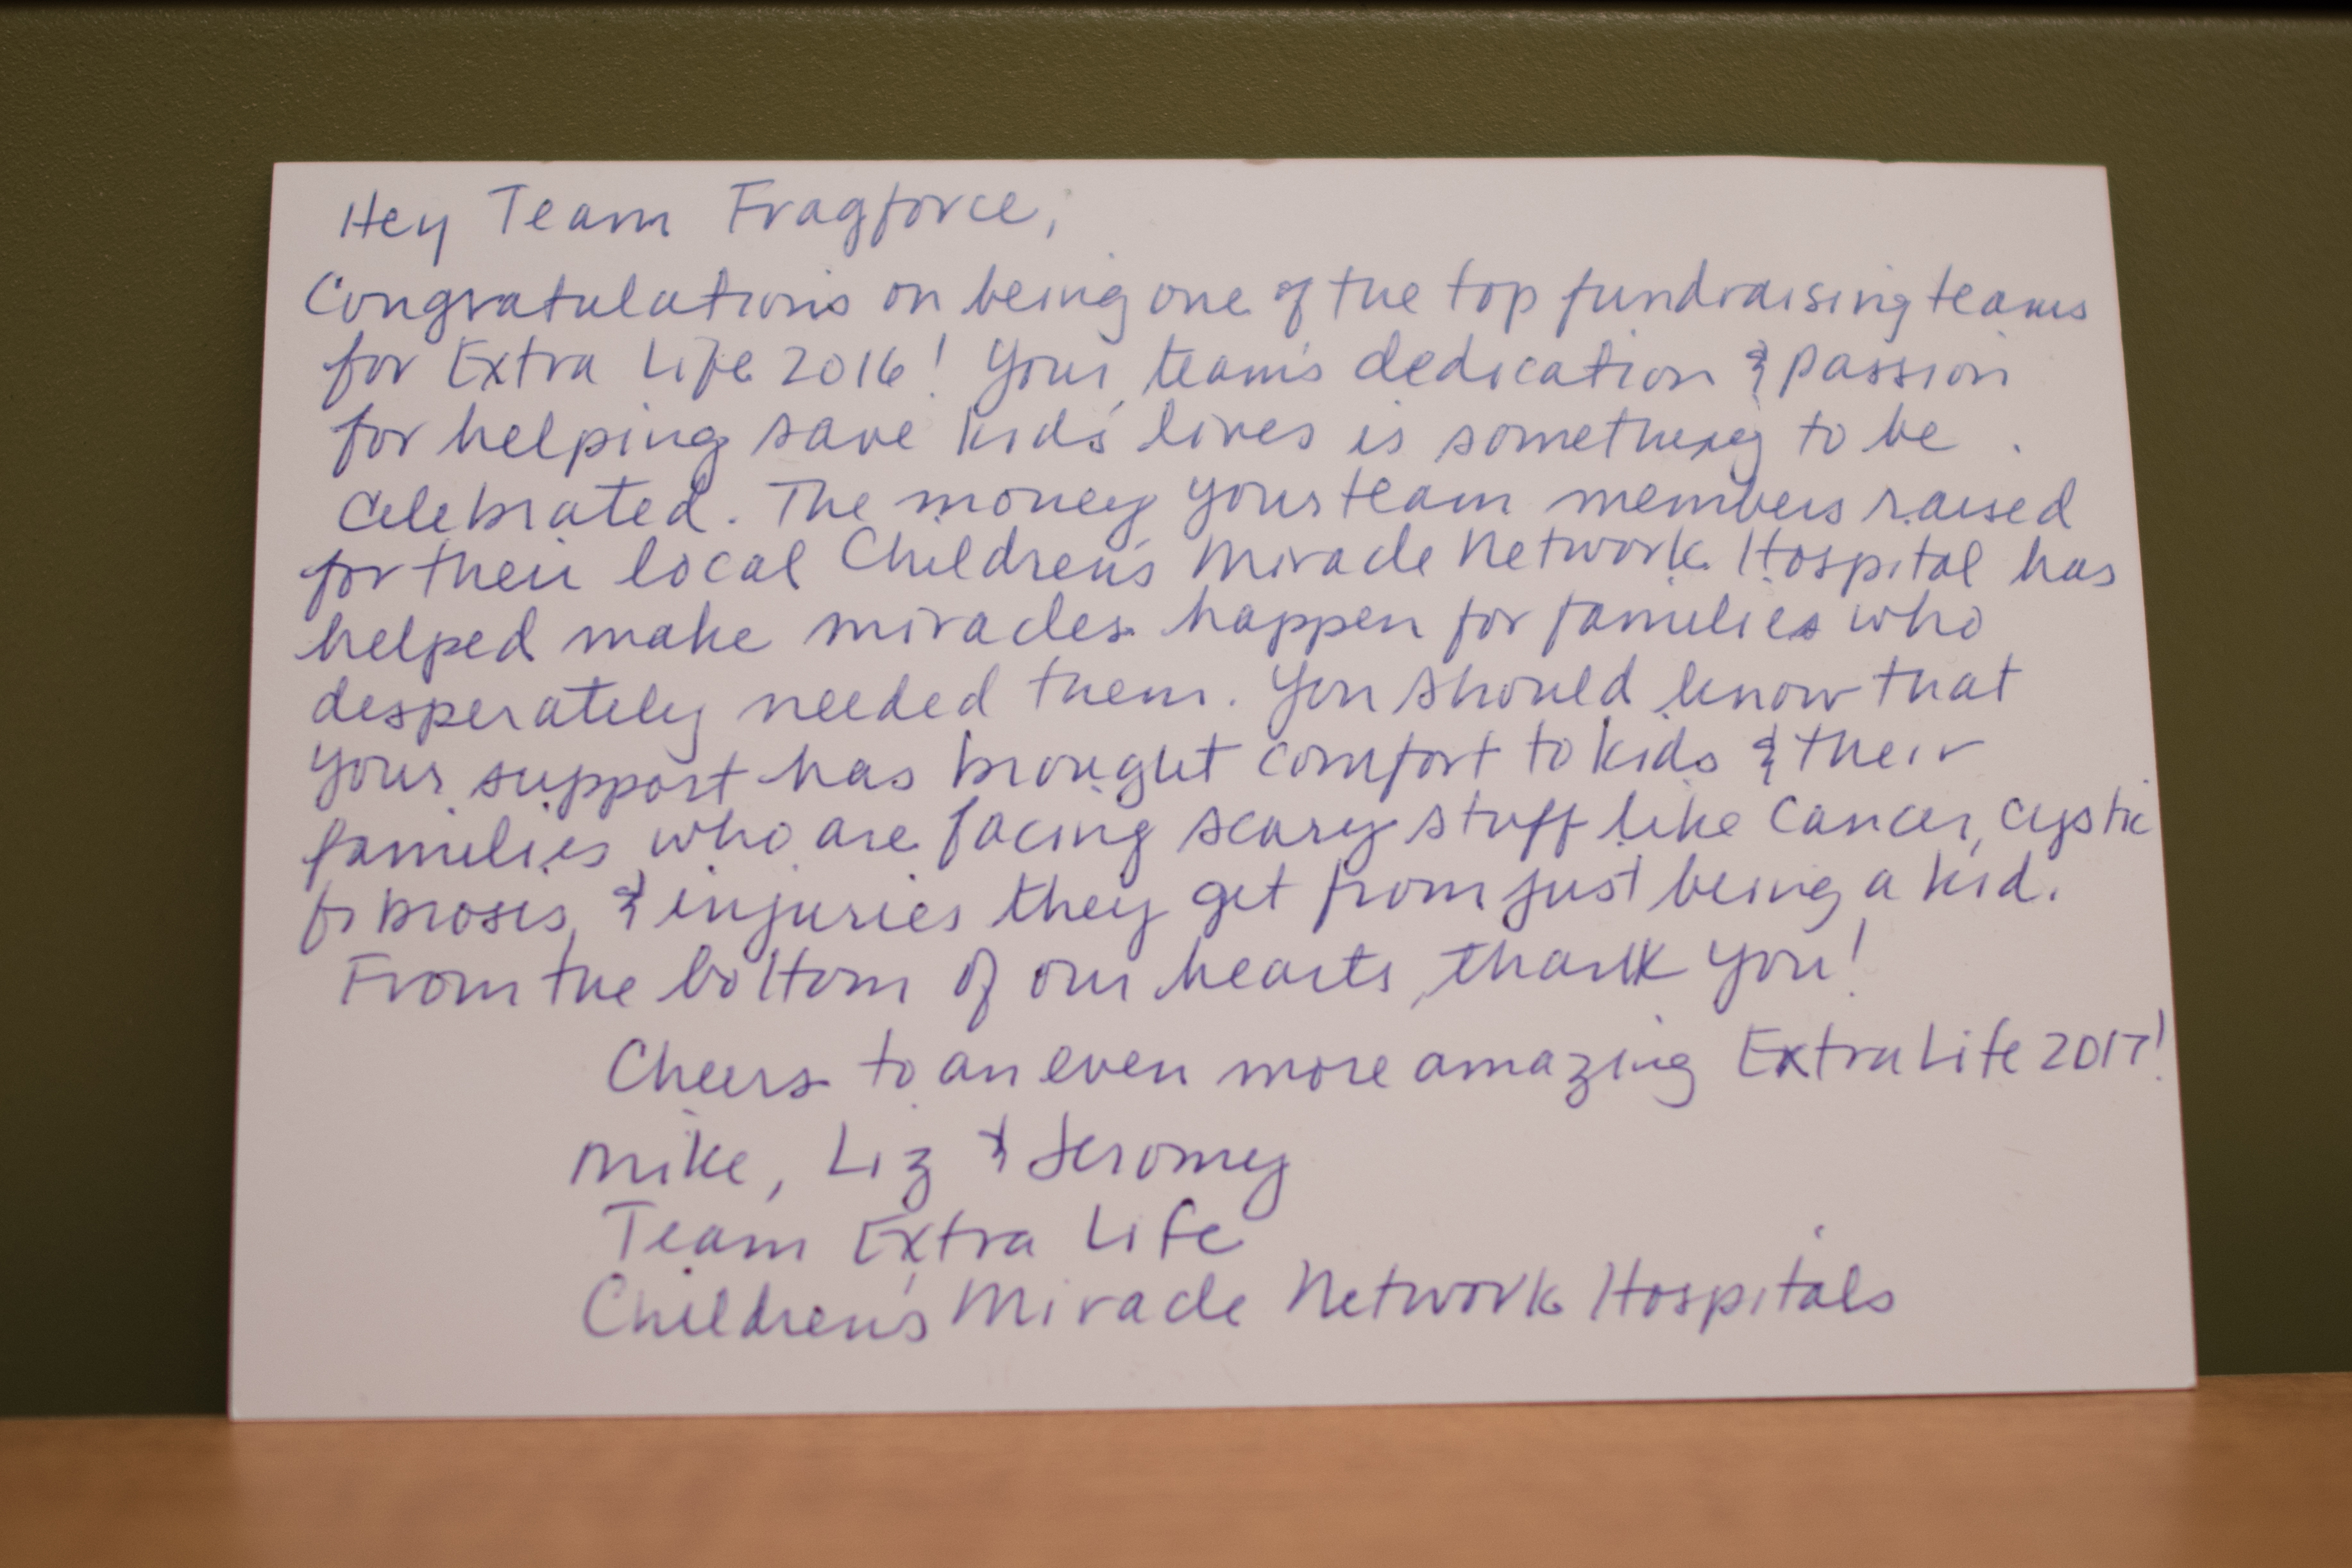 Hey Team Fragforce,
Congratulations on being one of the top fundraising teams
for Extra Life 2016! Your team's dedication & passion
for helping save kids' lives is something to be
celebrated. The money your team members raised
for their local Children's Miracle Network Hospital has
helped make miracles happen for families who
desperately needed them. You should know that
your support has brought comfort to kids & their
families who are facing scary stuff like cancer, cystic
fibrosis, & injuries they get from just being a kid.
From the bottom of our hearts, thank you!
Cheers to an even more amazing Extra Life 2017!
Mike, Liz & Jeromey
Team Extra Life
Children's Miracle Network Hospitals